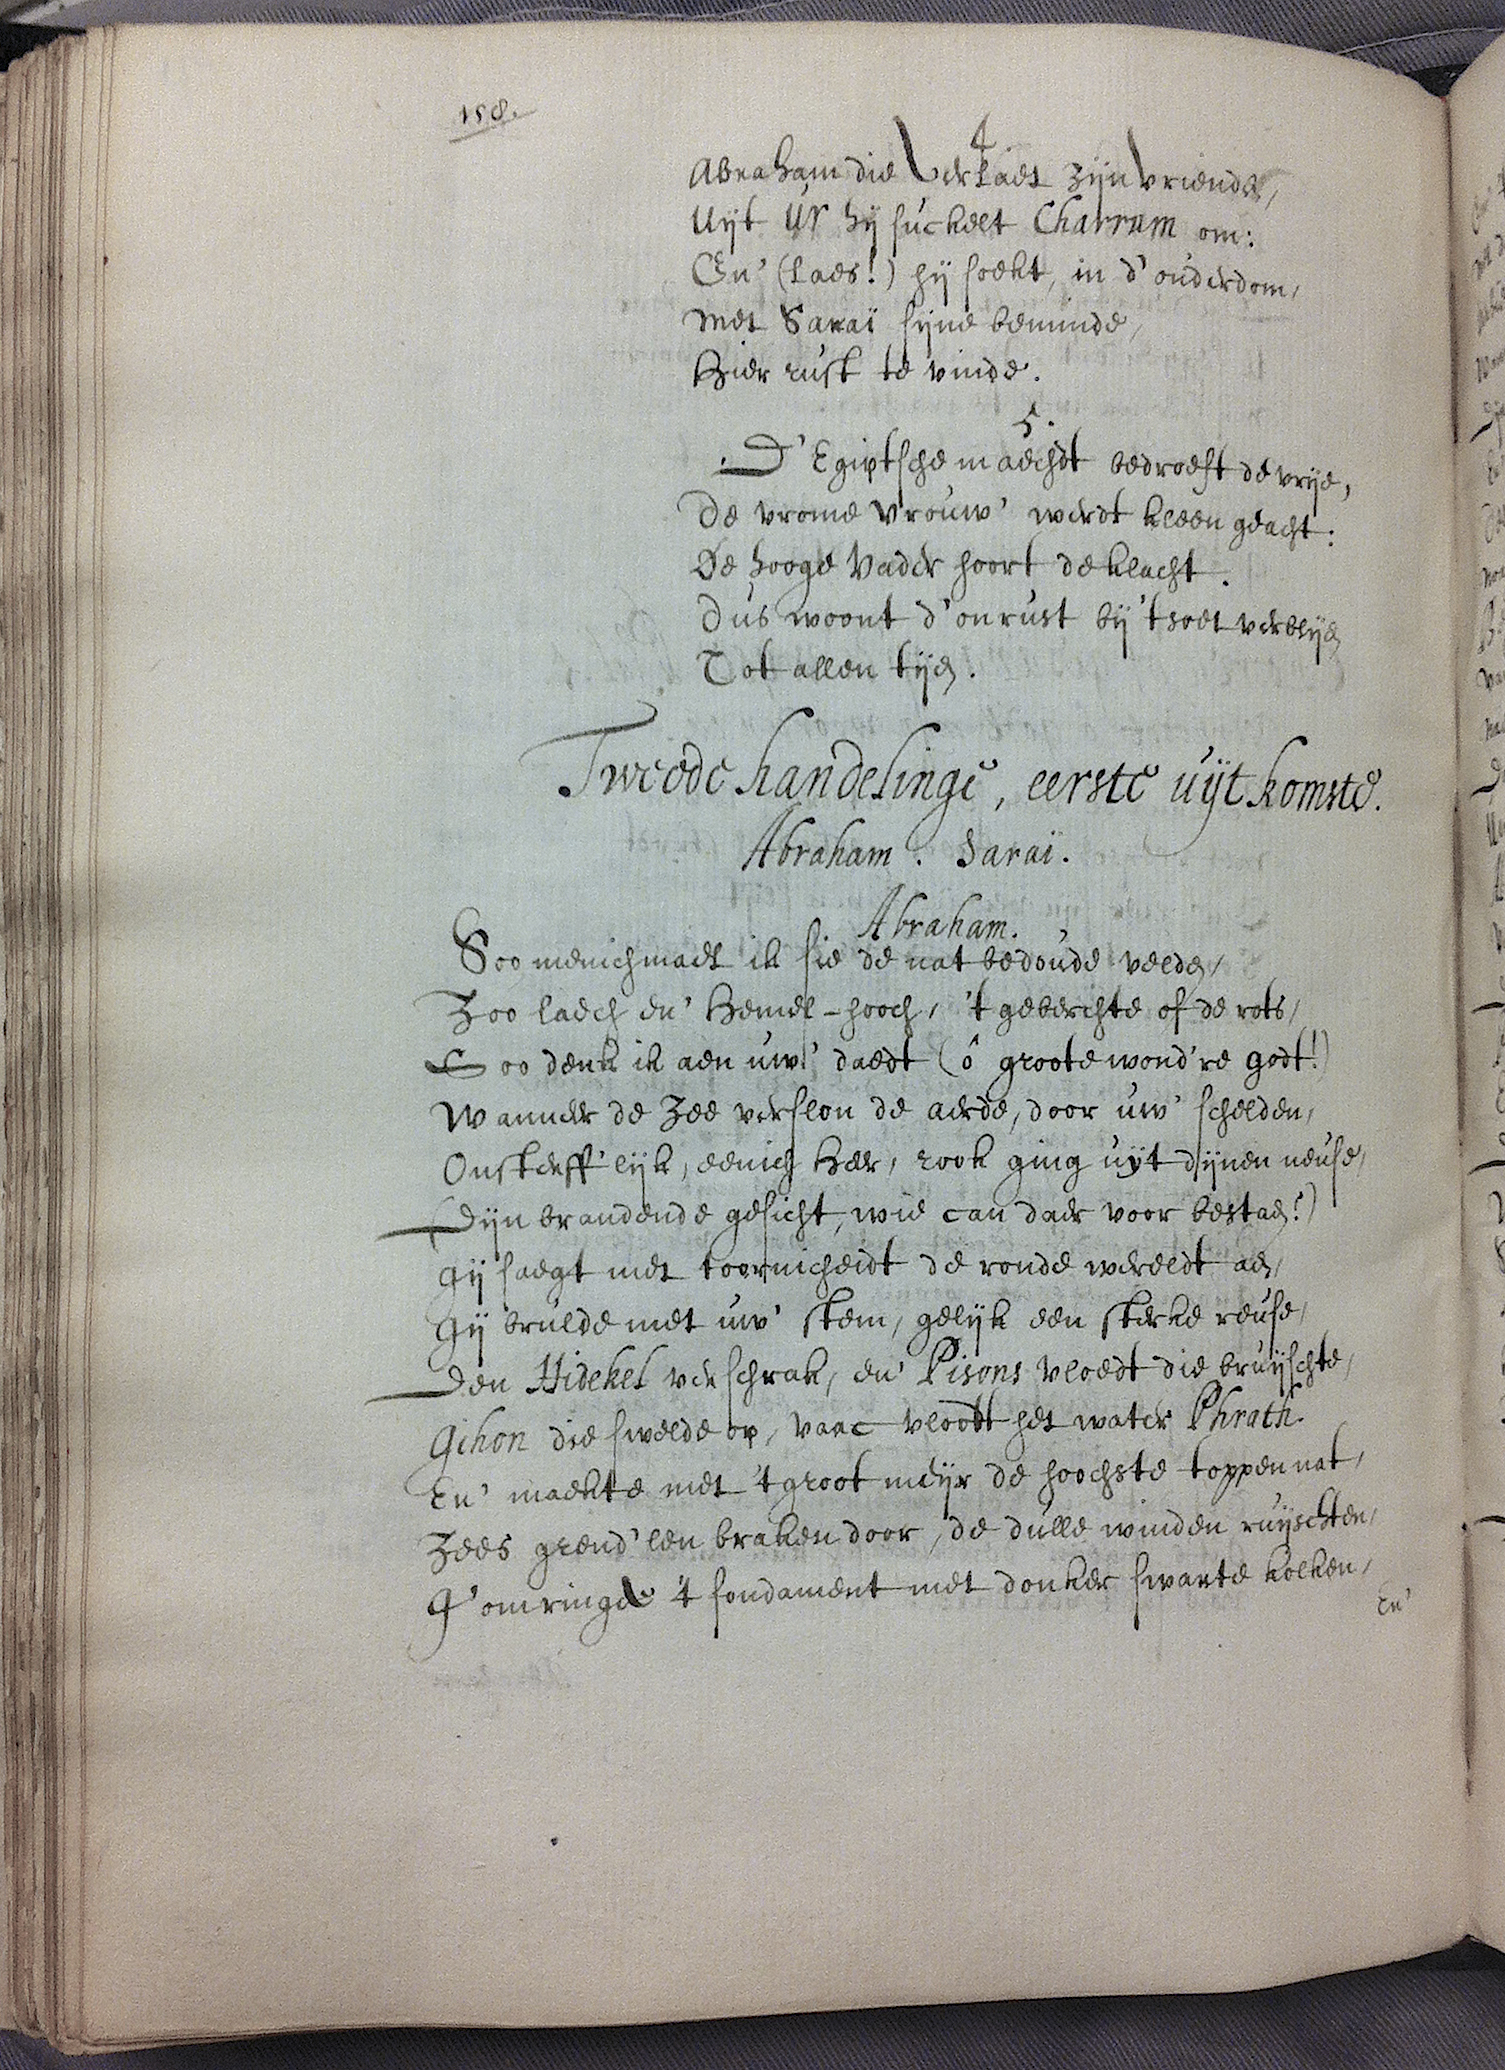 158.
4
Abraham die verlaet zijn vriende,
Uijt Ur hij suckelt Charram om:
En' (laes!) hij soekt, in d'ouderdom,
Met Saraï sijne beminde,
Hier rust te vinde.
5.
D'Egiptsche maechdt bedroeft de vrije,
De vrome vrouw' werdt kleen geacht:
De hooge Vader hoort de klacht.
Dus woont d'onrust bij 't soet verblijen
Tot allen tijen.
Tweede handelinge, eerste uijtkomste.
Abraham. Saraï.
Abraham.
Soo menichmael ik sie de nat bedoude velden,
Zoo laech en' Hemel-hooch, 't geberchte of de rots,
Soo denk ik aen uw' daedt (ô groote wond're godt!)
Wanneer de Zee verslon de aerde, door uw' schelden,
Onsterff'lijk, eenich Heer, rook ging uijt dijnen neuse,
(Dijn brandende gesicht, wie can daer voor bestaen?)
Gij saegt met toornicheidt de ronde wereldt aen,
Gij brulde met uw' stem, gelijk een sterke reuse,
Den Hidekel verschrak, en' Pisons vloedt die bruijschte,
Gihon die swelde op, vaac vloodt het water Phrath.
En' maekte met 't groot meijr de hoochste toppen nat,
Zees grend'len braken door, de dulle winden ruijschten,
G'omringde 't fondament met donker swarte kolken,
En'